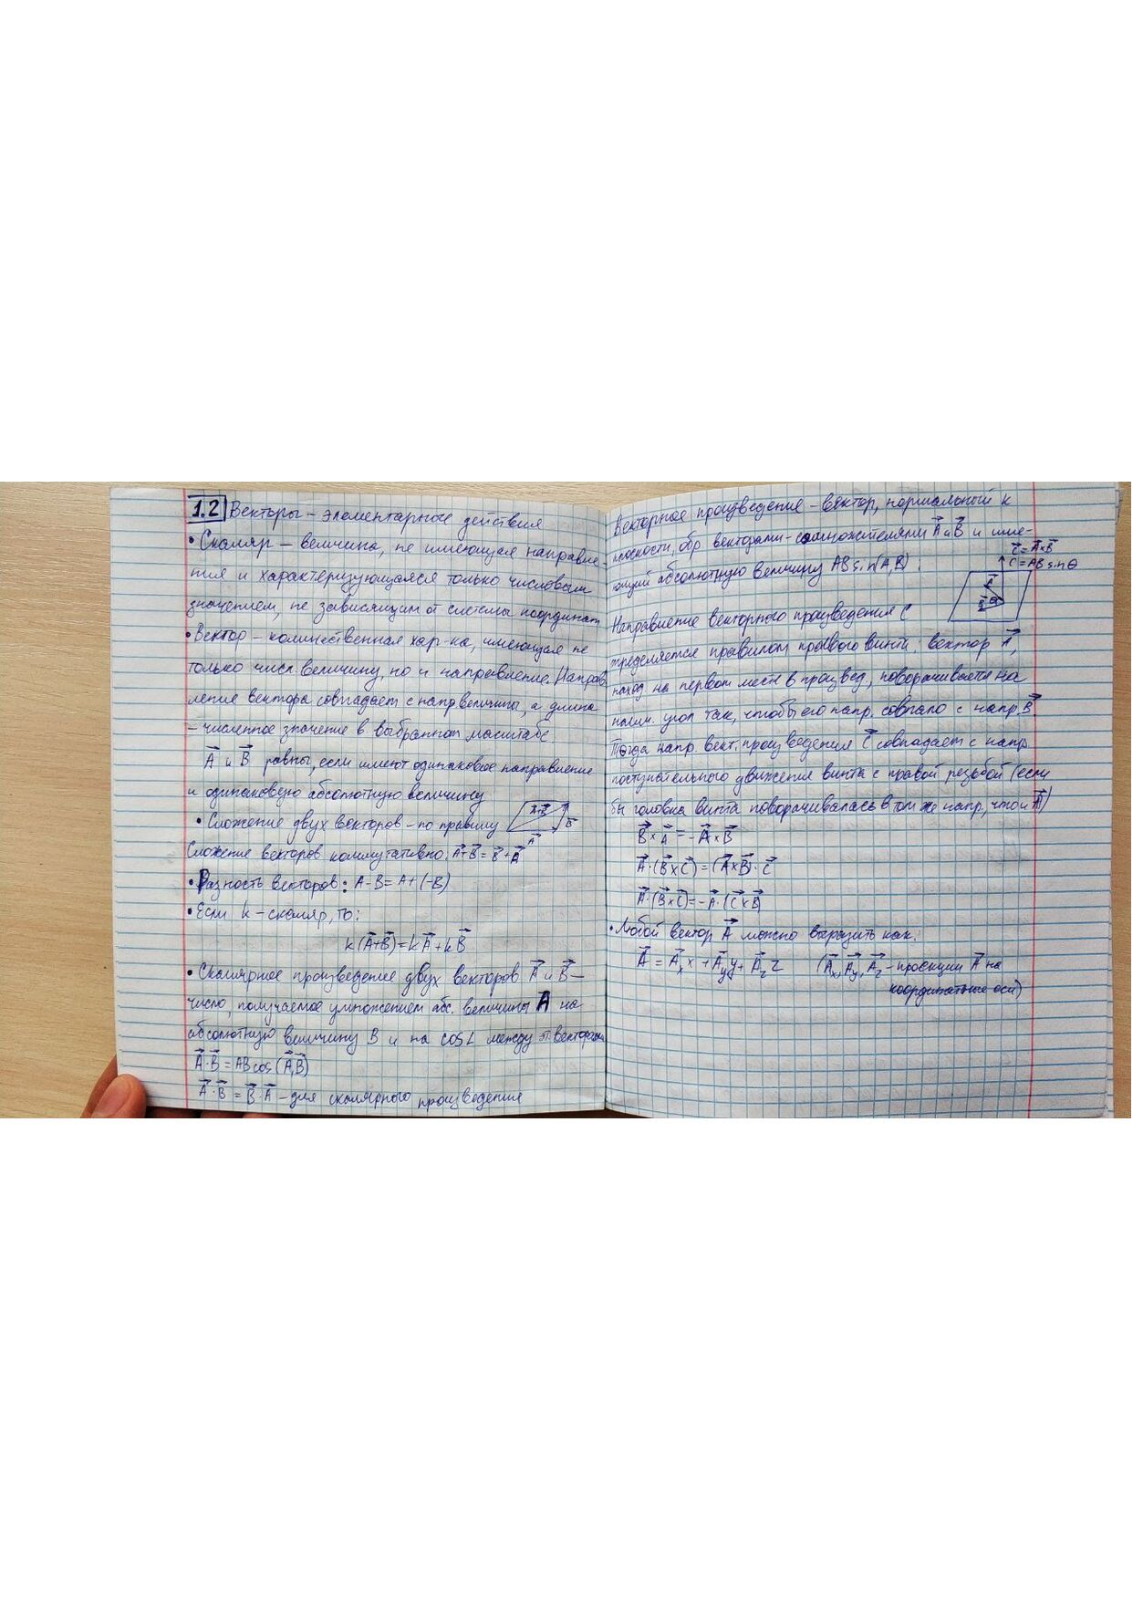 1.2 Векторы – элементарные действия
• Скаляр – величина, не имеющая направле-
ния и характеризующаяся только числовым
значением, не зависящим от системы координат
• Вектор – количественная хар-ка, имеющая не
только числ. величину, но и направление. Направ
ление вектора совпадает с напр величины, а длина
– численное значение в выбранном масштабе
A⃗ и B⃗ равны, если имеют одинаковое направление
и одинаковую абсолютную величину
• Сложение двух векторов – по правилу
A+B
B⃗
A⃗
Сложение векторов коммутативно: A⃗+B⃗ = B⃗+A⃗
• Разность векторов: A-B = A+(-B)
• Если k – скаляр, то:
k(A⃗+B⃗) = kA⃗ + kB⃗
• Скалярное произведение двух векторов A⃗ и B⃗ –
число, получаемое умножением абс. величины A на
абсолютную величину B и на cos∠ между векторами
A⃗·B⃗ = AB cos(A⃗,B⃗)
A⃗·B⃗ = B⃗·A⃗ – для скалярного произведения
Векторное произведение – вектор, нормальный к
плоскости, обр векторами-сомножителями A⃗ и B⃗ и име-
ющий абсолютную величину AB sin(A,B)
C⃗ = A⃗×B⃗
C = AB sinθ
Направление векторного произведения C
определяется правилом правого винта. Вектор A⃗,
наход на первом месте в произвед, поворачивается на
наим. угол так, чтобы его напр. совпало с напр B⃗
Тогда напр. вект. произведения C⃗ совпадает с напр
поступательного движения винта с правой резьбой (если
бы головка винта поворачивалась в том же напр, что и A⃗)
B⃗×A⃗ = -A⃗×B⃗
A⃗·(B⃗×C⃗) = (A⃗×B⃗)·C⃗
A⃗·(B⃗×C⃗) = -A⃗·(C⃗×B⃗)
• Любой вектор A⃗ можно выразить как:
A⃗ = A⃗ₓx + A⃗yy + A⃗zz (A⃗ₓ, A⃗y, A⃗z – проекции A⃗ на
координатные оси)